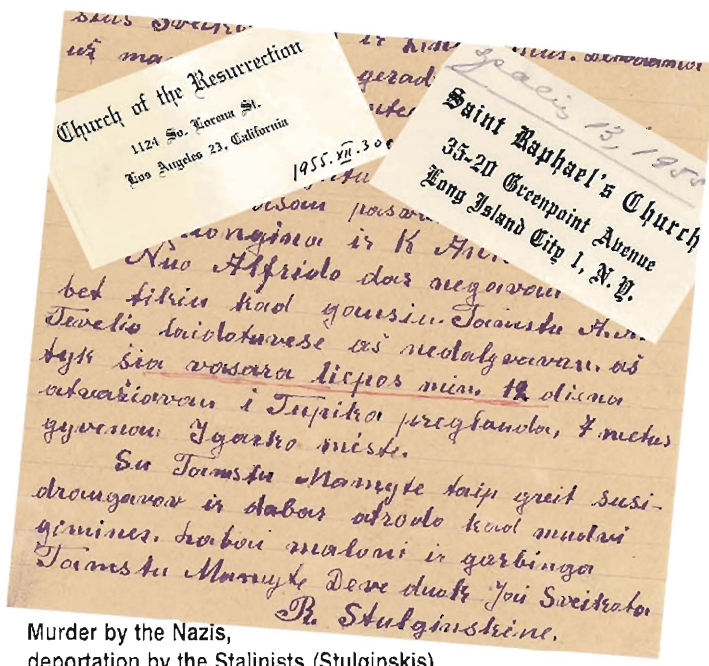 sias Sveika
už ma
gerad
Church of the Resurrection
1124 So. Lorena St.
Los Angeles 23, California
1955.XII.30
13, 1955
Saint Raphael's Church
35-20 Greenpoint Avenue
Long Island City 1, N. Y.
ir K
Nuo Alfrido dar negavau
bet tikiu kad gausiu. Tamstu
Tevelio laidotuvese aš nedalyvavau. aš
tyk šia vasara liepos mėn. 12 diena
atvažiavau i Tupika preglauda, 7 metus
gyvenau Igarko mieste.
Su Tamstu Mamyte taip greit susi-
draugavov ir dabar atrodo kad mudvi
gimines. Labai maloni ir garbinga
Tamstu Mamyte Deve duok Jai Sveikata
R. Stulginskiene.
Murder by the Nazis,
deportation by the Stalinists (Stulginskis)